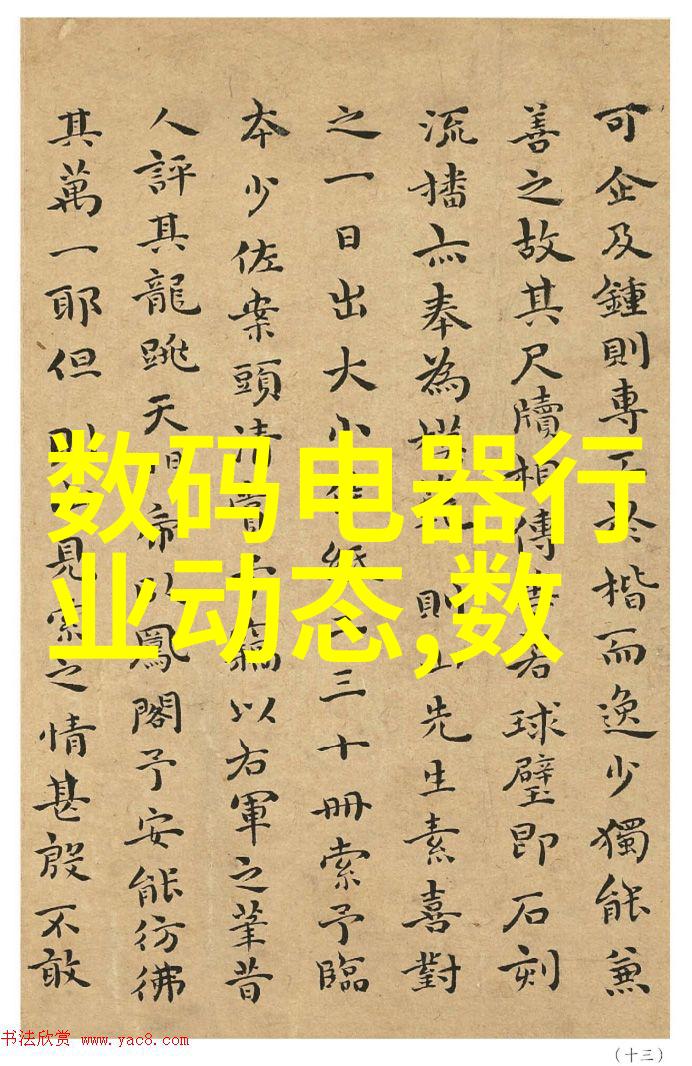 可企及鍾則專工於楷而逸少獨能兼
善之故其尺牘相傳若球璧即石刻
流播亦奉為則先生素喜對
之一日出大小紙三十冊索予臨
本少佐案頭清以右軍之筆昔
人評其龍跳天帝以鳳閣予安能彷彿
其萬一耶但見索之情甚殷不敢
数码电器行
业动态,数
书法欣赏 www.yac8.com
(十三)